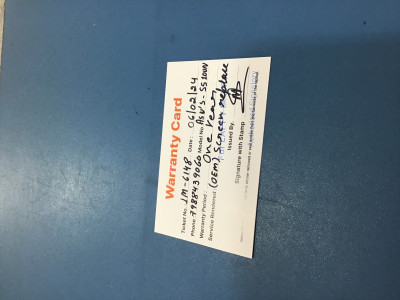 Warranty Card
Ticket No. JM-6148 Date: 06/02/24
Phone 7988439060 Model No. ASUS-S510UN
Warranty Period: One year
Service Rendered: (OEM) Screen replace
Issued By.
Signature with Stamp